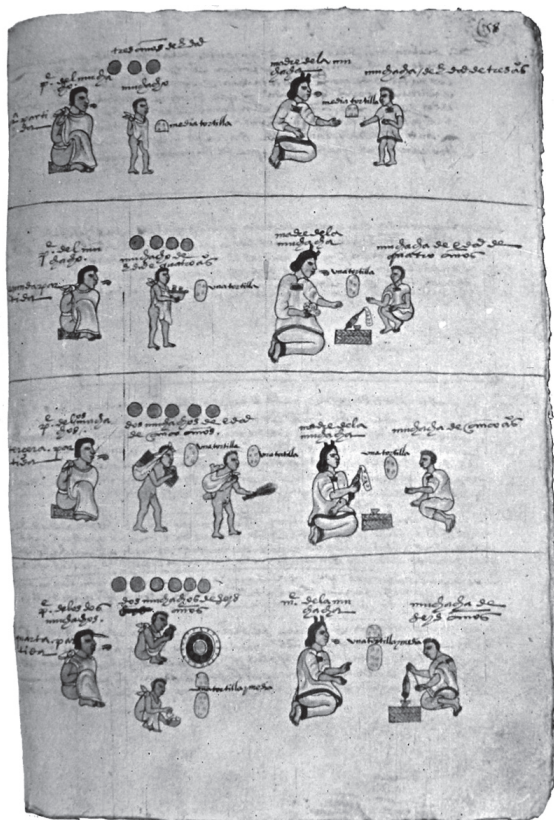 58
tres años de hedad
p.e del mucha
cho.
muchacho
media tortilla
madre de la mu
chacha
media tortilla
muchacha / de hedad de tres años
p.e del mu
chacho.
muchacho de
hedad de quatro años
una tortilla
madre de la
muchacha
una tortilla
muchacha de edad de
quatro años
tercera par
tida
dos muchachos de edad
de cinco años
una tortilla
una tortilla
madre de la
muchacha
una tortilla
muchacha de cinco años
p.e de los dos
muchachos.
quarta par
tida
dos muchachos de seis
años
una tortilla y media
m.e de la mu
chacha
una tortilla y media
muchacha de
seis años